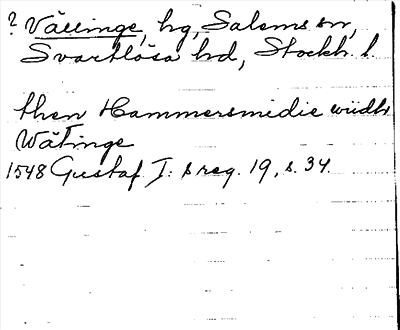 ? Vällinge, hg, Salems sn,
Svartlösa hd, Stockh. l.
then Hammersmedie widh
Wätinge
1548 Gustaf I: s reg. 19, s. 34.